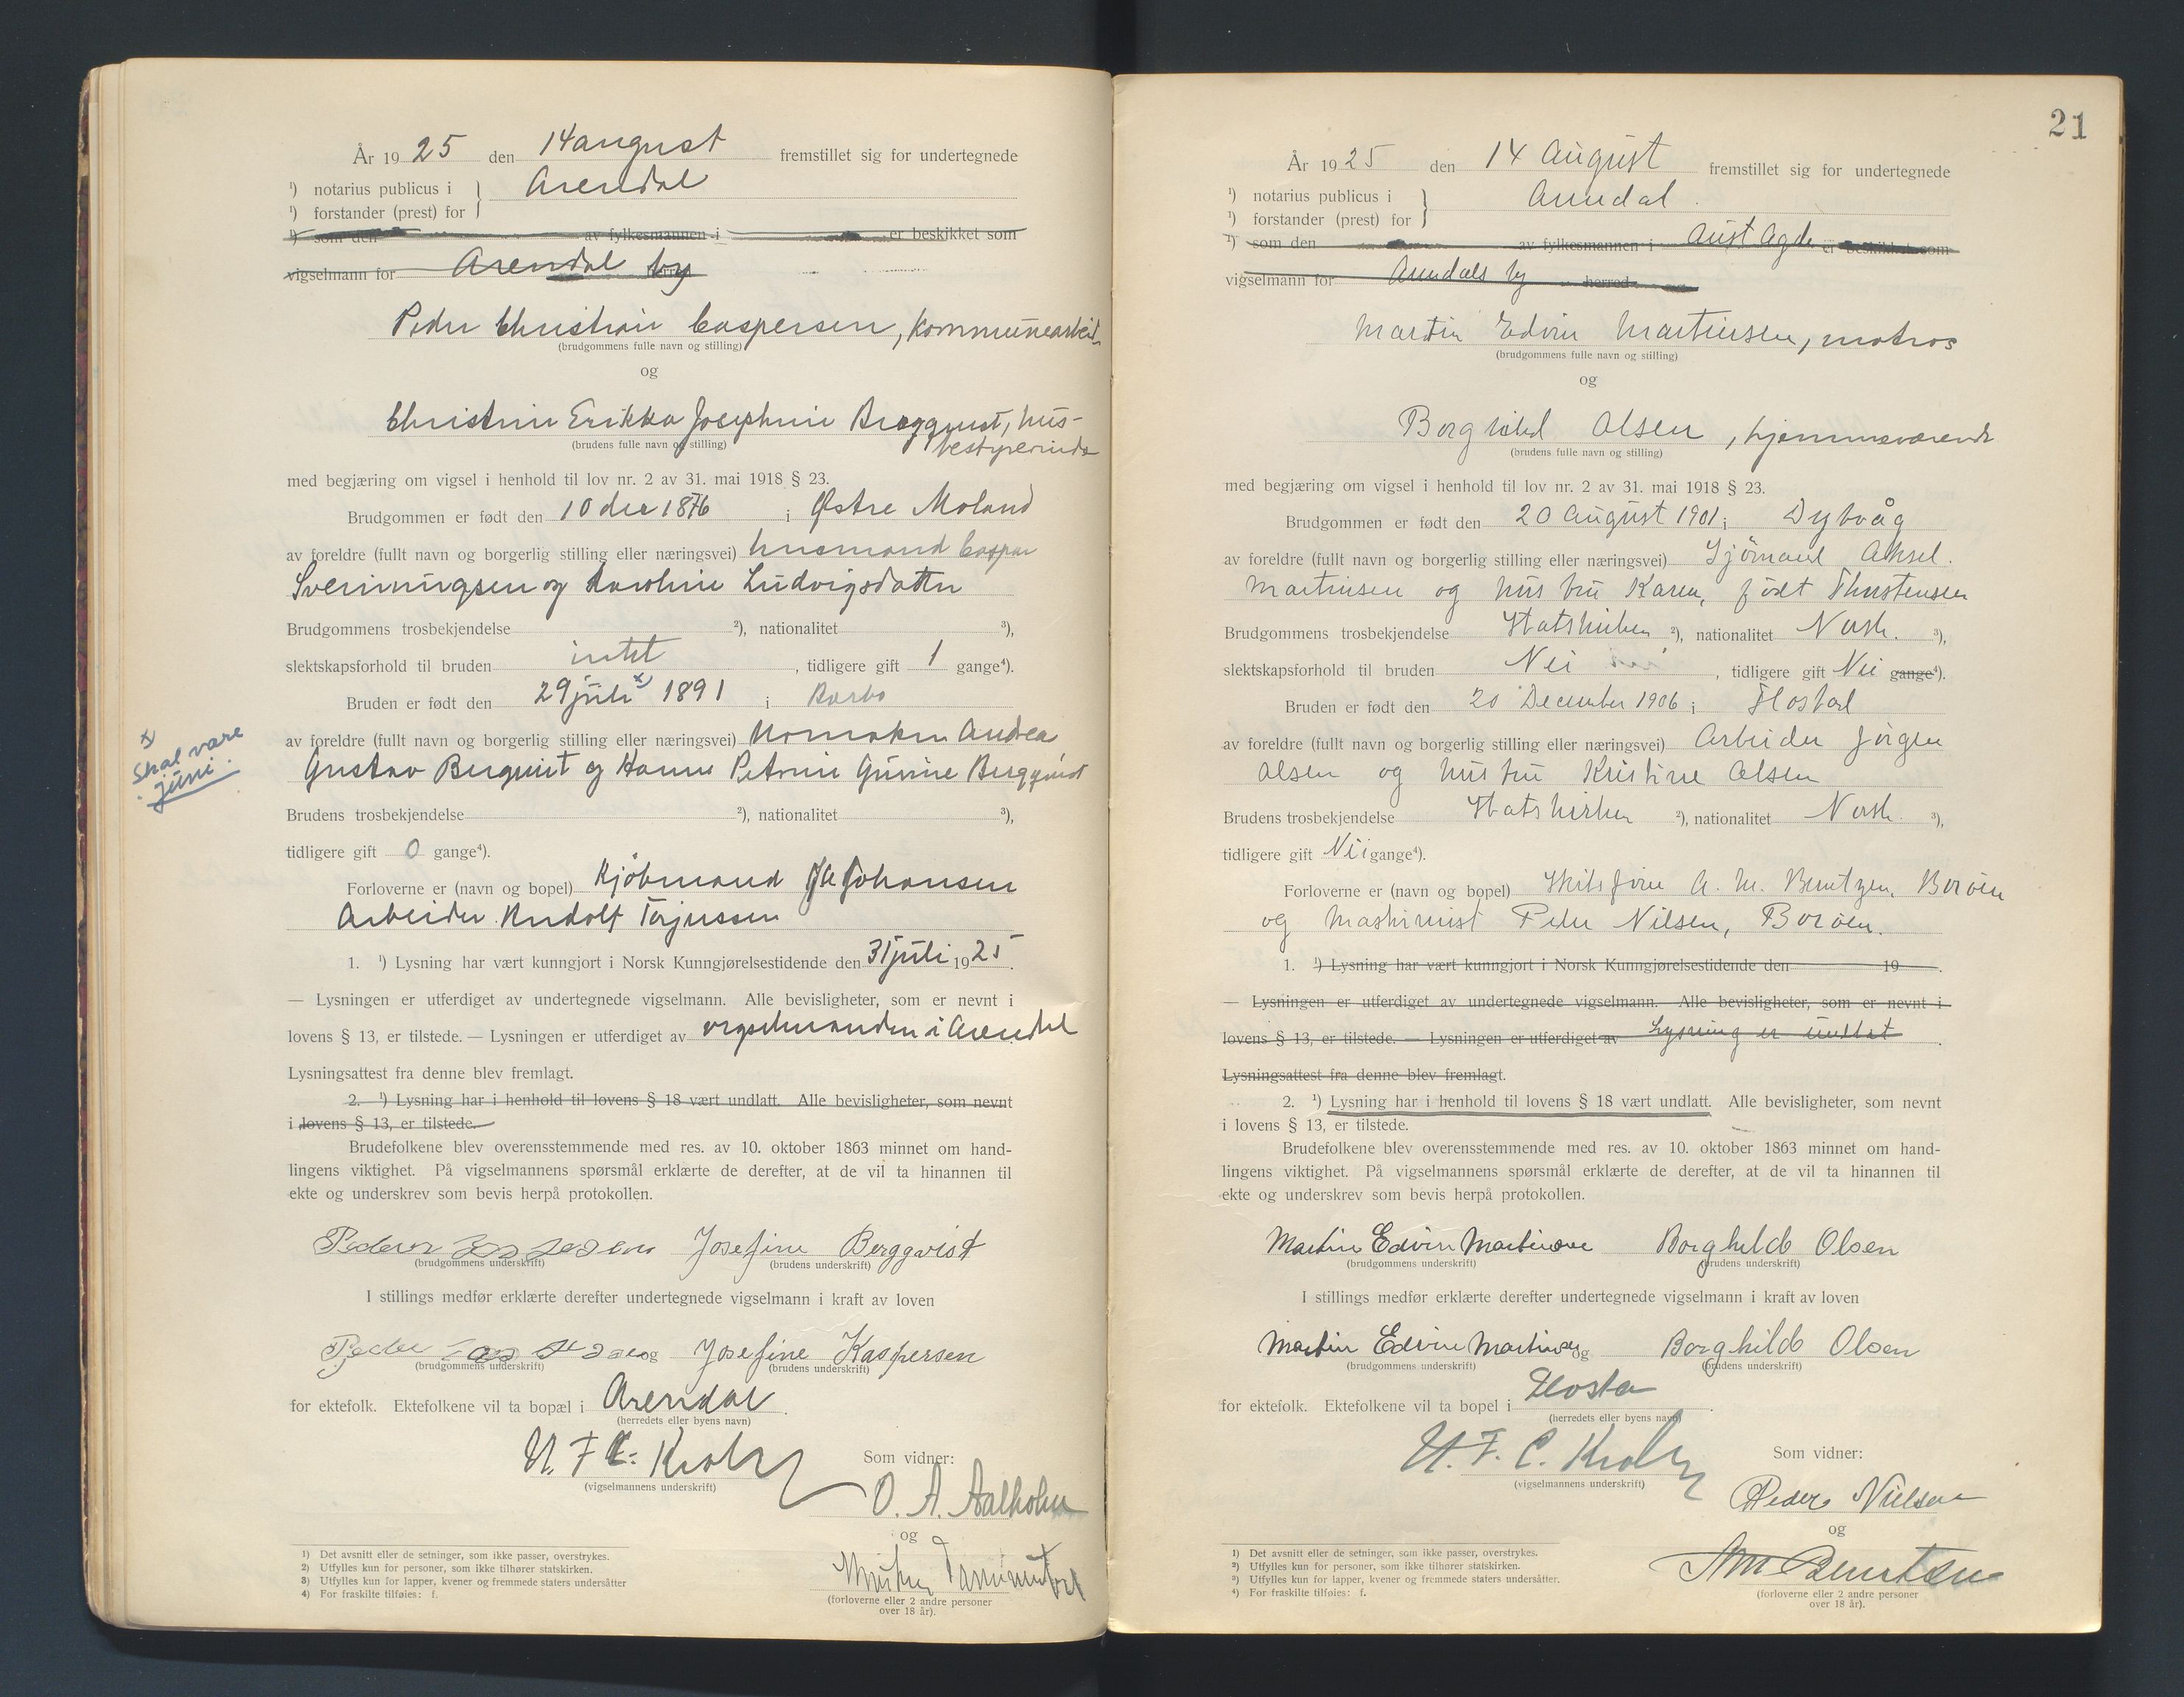 År 1925 den 14 august fremstillet sig for undertegnede
¹) notarius publicus i
¹) forstander (prest) for } Arendal
¹) som den av fylkesmannen i er beskikket som
vigselmann for Arendal by
Peder Christian Caspersen, kommunearbeid.
(brudgommens fulle navn og stilling)
og
Christine Erikka Josephine Bergquist, hus-
bestyrerinde
(brudens fulle navn og stilling)
med begjæring om vigsel i henhold til lov nr. 2 av 31. mai 1918 § 23.
Brudgommen er født den 10 des 1876 i Østre Moland
av foreldre (fullt navn og borgerlig stilling eller næringsvei) husmand Caspar
Svenningsen og Karoline Ludvigsdatter
Brudgommens trosbekjendelse ²), nationalitet ³),
slektskapsforhold til bruden intet, tidligere gift 1 gange⁴).
Bruden er født den 29 juli x) 1891 i Barbo
x)
Skal være
juni.
av foreldre (fullt navn og borgerlig stilling eller næringsvei) Urmaker Andrea
Gustav Bergquist og Hanne Petrine Gurine Bergquist
Brudens trosbekjendelse ²), nationalitet ³),
tidligere gift 0 gange⁴).
Forloverne er (navn og bopel) Kjøbmand Johansen
Arbeider Rudolf Terjussen
1. ¹) Lysning har vært kunngjort i Norsk Kunngjørelsestidende den 31 juli 1925.
— Lysningen er utferdiget av undertegnede vigselmann. Alle bevisligheter, som er nevnt i
lovens § 13, er tilstede. — Lysningen er utferdiget av vigselmanden i Arendal
Lysningsattest fra denne blev fremlagt.
2. ¹) Lysning har i henhold til lovens § 18 vært undlatt. Alle bevisligheter, som nevnt
i lovens § 13, er tilstede.
Brudefolkene blev overensstemmende med res. av 10. oktober 1863 minnet om hand-
lingens viktighet. På vigselmannens spørsmål erklærte de derefter, at de vil ta hinannen til
ekte og underskrev som bevis herpå protokollen.
Peder Josefine Berggvist
(brudgommens underskrift) (brudens underskrift)
I stillings medfør erklærte derefter undertegnede vigselmann i kraft av loven
Peder og Josefine Kaspersen
(brudgommens underskrift) (brudens underskrift)
for ektefolk. Ektefolkene vil ta bopæl i Arendal.
(herredets eller byens navn)
U. F. C. Krohn Som vidner:
(vigselmannens underskrift)
O. A. Aalholm
og
(forloverne eller 2 andre personer
over 18 år).
1) Det avsnitt eller de setninger, som ikke passer, overstrykes.
2) Utfylles kun for personer, som ikke tilhører statskirken.
3) Utfylles kun for lapper, kvener og fremmede staters undersåtter
4) For fraskilte tilføies: f.
21
År 1925 den 14 August fremstillet sig for undertegnede
¹) notarius publicus i
¹) forstander (prest) for } Arendal.
¹) som den av fylkesmannen i Aust Agder er beskikket som
vigselmann for Arendals by herred
Martin Edvin Martinsen, matros
(brudgommens fulle navn og stilling)
og
Borghild Olsen, hjemmeværende
(brudens fulle navn og stilling)
med begjæring om vigsel i henhold til lov nr. 2 av 31. mai 1918 § 23.
Brudgommen er født den 20 August 1901 i Dybvåg
av foreldre (fullt navn og borgerlig stilling eller næringsvei) Sjømand Aksel
Martinsen og hustru Karen, født Thorstensen
Brudgommens trosbekjendelse Statskirken ²), nationalitet Norsk. ³),
slektskapsforhold til bruden Nei, tidligere gift Nei gange⁴).
Bruden er født den 20 December 1906 i Flosta
av foreldre (fullt navn og borgerlig stilling eller næringsvei) Arbeider Jørgen
Olsen og hustru Kristine Olsen
Brudens trosbekjendelse Statskirken ²), nationalitet Norsk ³),
tidligere gift Nei gange⁴).
Forloverne er (navn og bopel) Skibsfører A. M. Berntzen, Borøen
og Maskinist Peder Nilsen, Borøen.
1. ¹) Lysning har vært kunngjort i Norsk Kunngjørelsestidende den 19 .
— Lysningen er utferdiget av undertegnede vigselmann. Alle bevisligheter, som er nevnt i
lovens § 13, er tilstede. — Lysningen er utferdiget av Lysning er undlat.
Lysningsattest fra denne blev fremlagt.
2. ¹) Lysning har i henhold til lovens § 18 vært undlatt. Alle bevisligheter, som nevnt
i lovens § 13, er tilstede.
Brudefolkene blev overensstemmende med res. av 10. oktober 1863 minnet om hand-
lingens viktighet. På vigselmannens spørsmål erklærte de derefter, at de vil ta hinannen til
ekte og underskrev som bevis herpå protokollen.
Martin Edvin Martinsen Borghild Olsen
(brudgommens underskrift) (brudens underskrift)
I stillings medfør erklærte derefter undertegnede vigselmann i kraft av loven
Martin Edvin Martinsen og Borghild Olsen
(brudgommens underskrift) (brudens underskrift)
for ektefolk. Ektefolkene vil ta bopel i Flosta.
(herredets eller byens navn)
U. F. C. Krohn Som vidner:
(vigselmannens underskrift)
Peder Nielsen
og
AM Berntsen
(forloverne eller 2 andre personer
over 18 år).
1) Det avsnitt eller de setninger, som ikke passer, overstrykes.
2) Utfylles kun for personer, som ikke tilhører statskirken.
3) Utfylles kun for lapper, kvener og fremmede staters undersåtter.
4) For fraskilte tilføies: f.